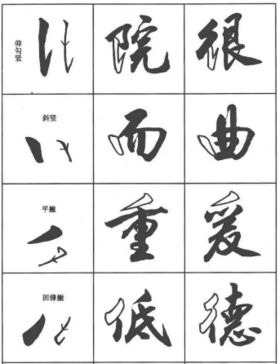 仰勾竖 院 很
斜竖 而 曲
平撇 重 爰
回锋撇 低 德